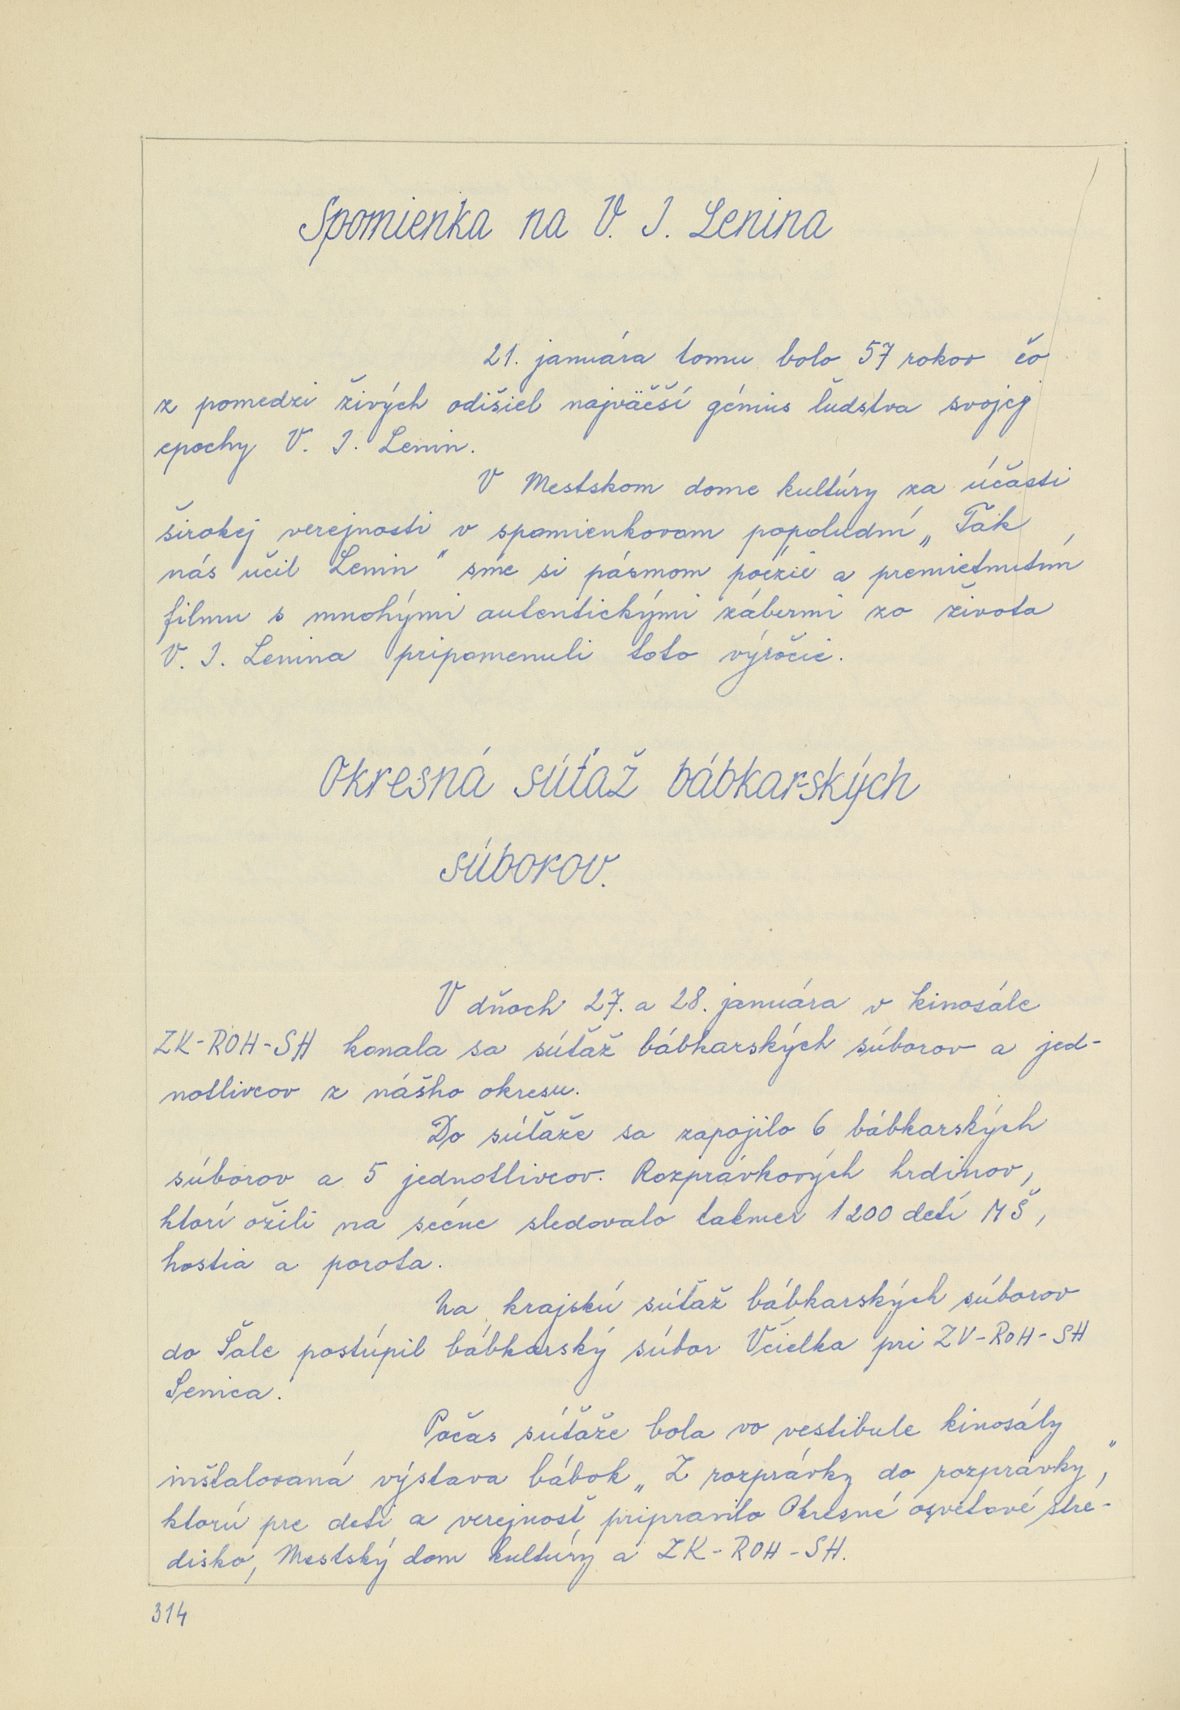 Spomienka na V. I. Lenina
21. januára tomu bolo 57 rokov čo
z pomedzi živých odišiel najväčší génius ľudstva svojej
epochy V. I. Lenin.
V Mestskom dome kultúry za účasti
širokej verejnosti v spomienkovom popoludní „Tak
nás učil Lenin" sme si pásmom poézie a premietnutím
filmu s mnohými autentickými zábermi zo života
V. I. Lenina pripomenuli toto výročie.
Okresná súťaž bábkarských
súborov.
V dňoch 27. a 28. januára v kinosále
ZK-ROH-SH konala sa súťaž bábkarských súborov a jed-
notlivcov z nášho okresu.
Do súťaže sa zapojilo 6 bábkarských
súborov a 5 jednotlivcov. Rozprávkových hrdinov,
ktorí ožili na scéne sledovalo takmer 1200 detí MŠ,
hostia a porota.
Na krajskú súťaž bábkarských súborov
do Šale postúpil bábkarský súbor Včielka pri ZV-ROH-SH
Senica.
Počas súťaže bola vo vestibule kinosály
inštalovaná výstava bábok „Z rozprávky do rozprávky",
ktorú pre deti a verejnosť pripravilo Okresné osvetové stre-
disko, Mestský dom kultúry a ZK-ROH-SH.
314